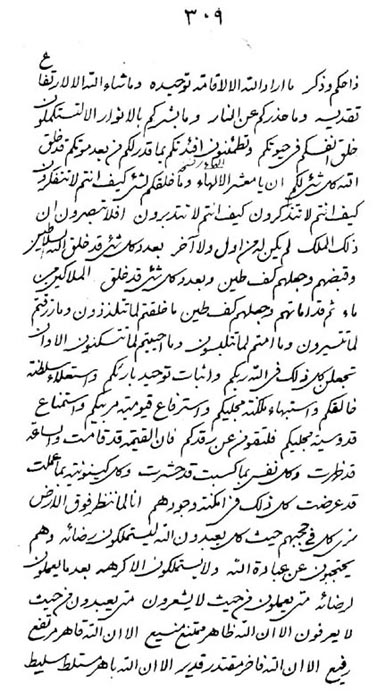 ٣٠٩
ذا حكم وذكر ما اراد الله الا لاقامة توحيده وما شاء الله الا لارتفاع
تقديسه وما حذركم عن النار وما بشركم بالانوار الا لتستكملون
خلق انفسكم في حيوتكم وتطمئنون افئدتكم بما قدر لكم من بعد موتكم قد خلق
الله كل شئ لكم ان يا معشر الالهاء وما خلقكم لشئ كيف انتم لا تتفكرون
كيف انتم لا تتذكرون كيف انتم لا تتدبرون افلا تبصرون ان
ذلك الملك لم يكن له من اول ولا آخر بعدد كل شئ قد خلق الله السلاطين
وقبضهم وجعلهم كف طين وبعدد كل شئ قد خلق الملاكين من
ماء ثم قد اماتهم وجعلهم كف طين ما خلقتم لما تتلذذون وما رزقتم
لما تسيرون وما امتم لما تلبسون وما احييتم لما تسكنون الا وان
تجعلن كل ذلك في الله ربكم واثبات توحيد بارئكم واستعلاء سلطنة
خالقكم واستبهاء ملكة مجليكم واسترفاع قيومية مربيكم واستمناع
قدوسية مجليكم فلتفقون عن رقدكم فان القيمة قد قامت والساعة
قد ظهرت وكل نفس بما كسبت قد حشرت وكل كينونية بما عملت
قد عرضت كل ذلك في امكنة وجودهم انا لما ننظر فوق الارض
نرى كل في حجبهم حيث كل يعبدون الله ليستملكون رضائه وهم
يحتجبون عن عبادة الله ولا يستملكون الا كرهه بعد ما يعملون
لرضائه متى يعملون من حيث لا يشعرون متى يعبدون من حيث
لا يعرفون الا ان الله ظاهر ممتنع منيع الا ان الله قاهر مرتفع
رفيع الا ان الله فاخر مقتدر قدير الا ان الله باهر متسلط سليط